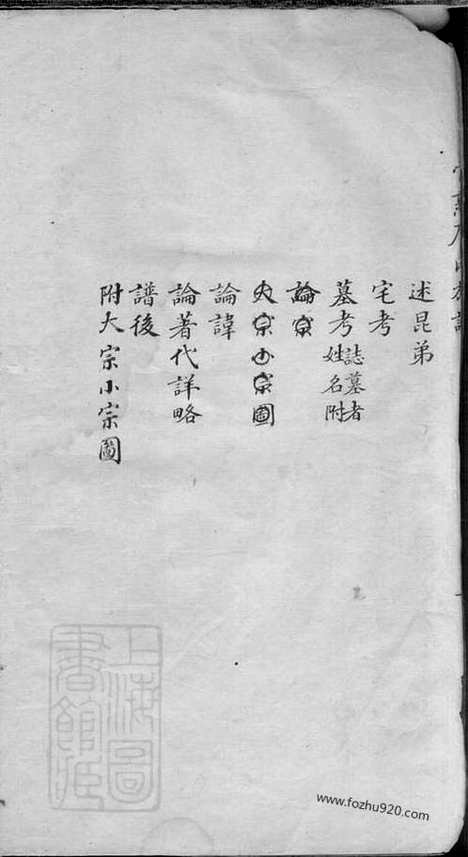 述昆弟
宅考
墓考 誌墓者姓名附
論宗
大宗小宗圖
論諱
論著代詳略
譜後
附大宗小宗圖
上海圖書館藏
www.fozhu920.com